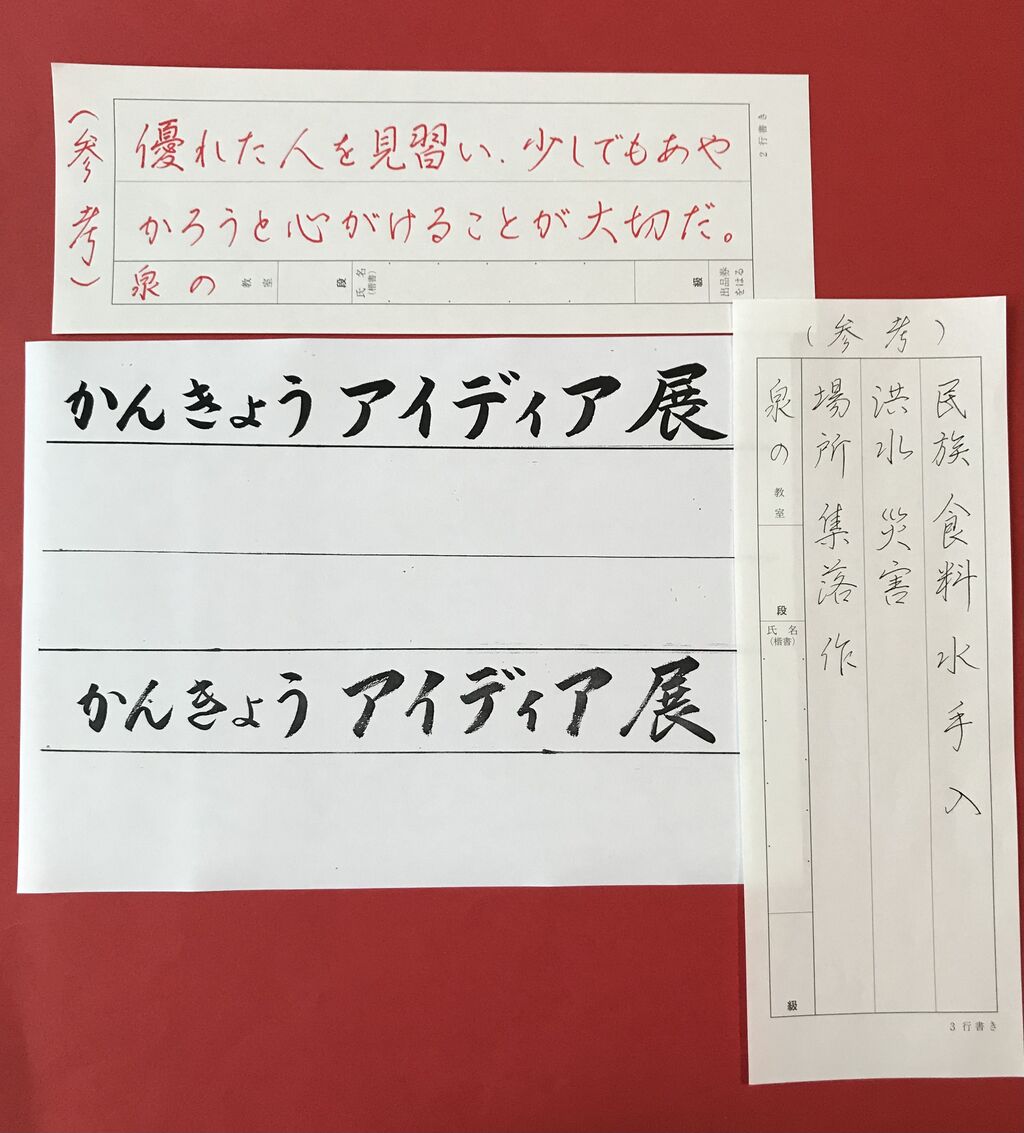 （参考）
優れた人を見習い、少しでもあや
かろうと心がけることが大切だ。
泉の 教室 段 氏名（楷書） 級 出品券をはる
2行書き
かんきょうアイディア展
かんきょうアイディア展
（参考）
民族 食料 水 手 入
洪水 災害
場所 集落 作
泉の 教室 段 氏名（楷書） 級
3行書き